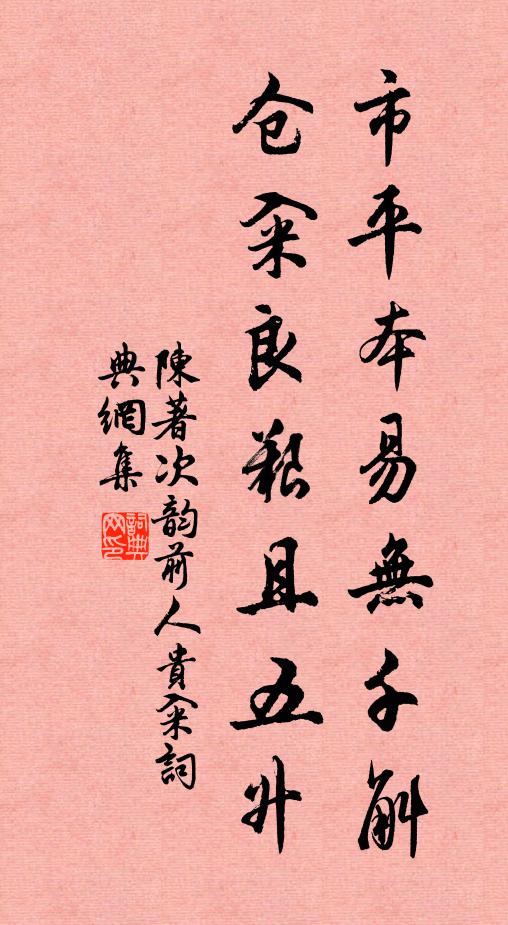 市平本易無千斛
仓籴良艱且五升
陳著次韵前人貴籴詞
典網集
詞典網印